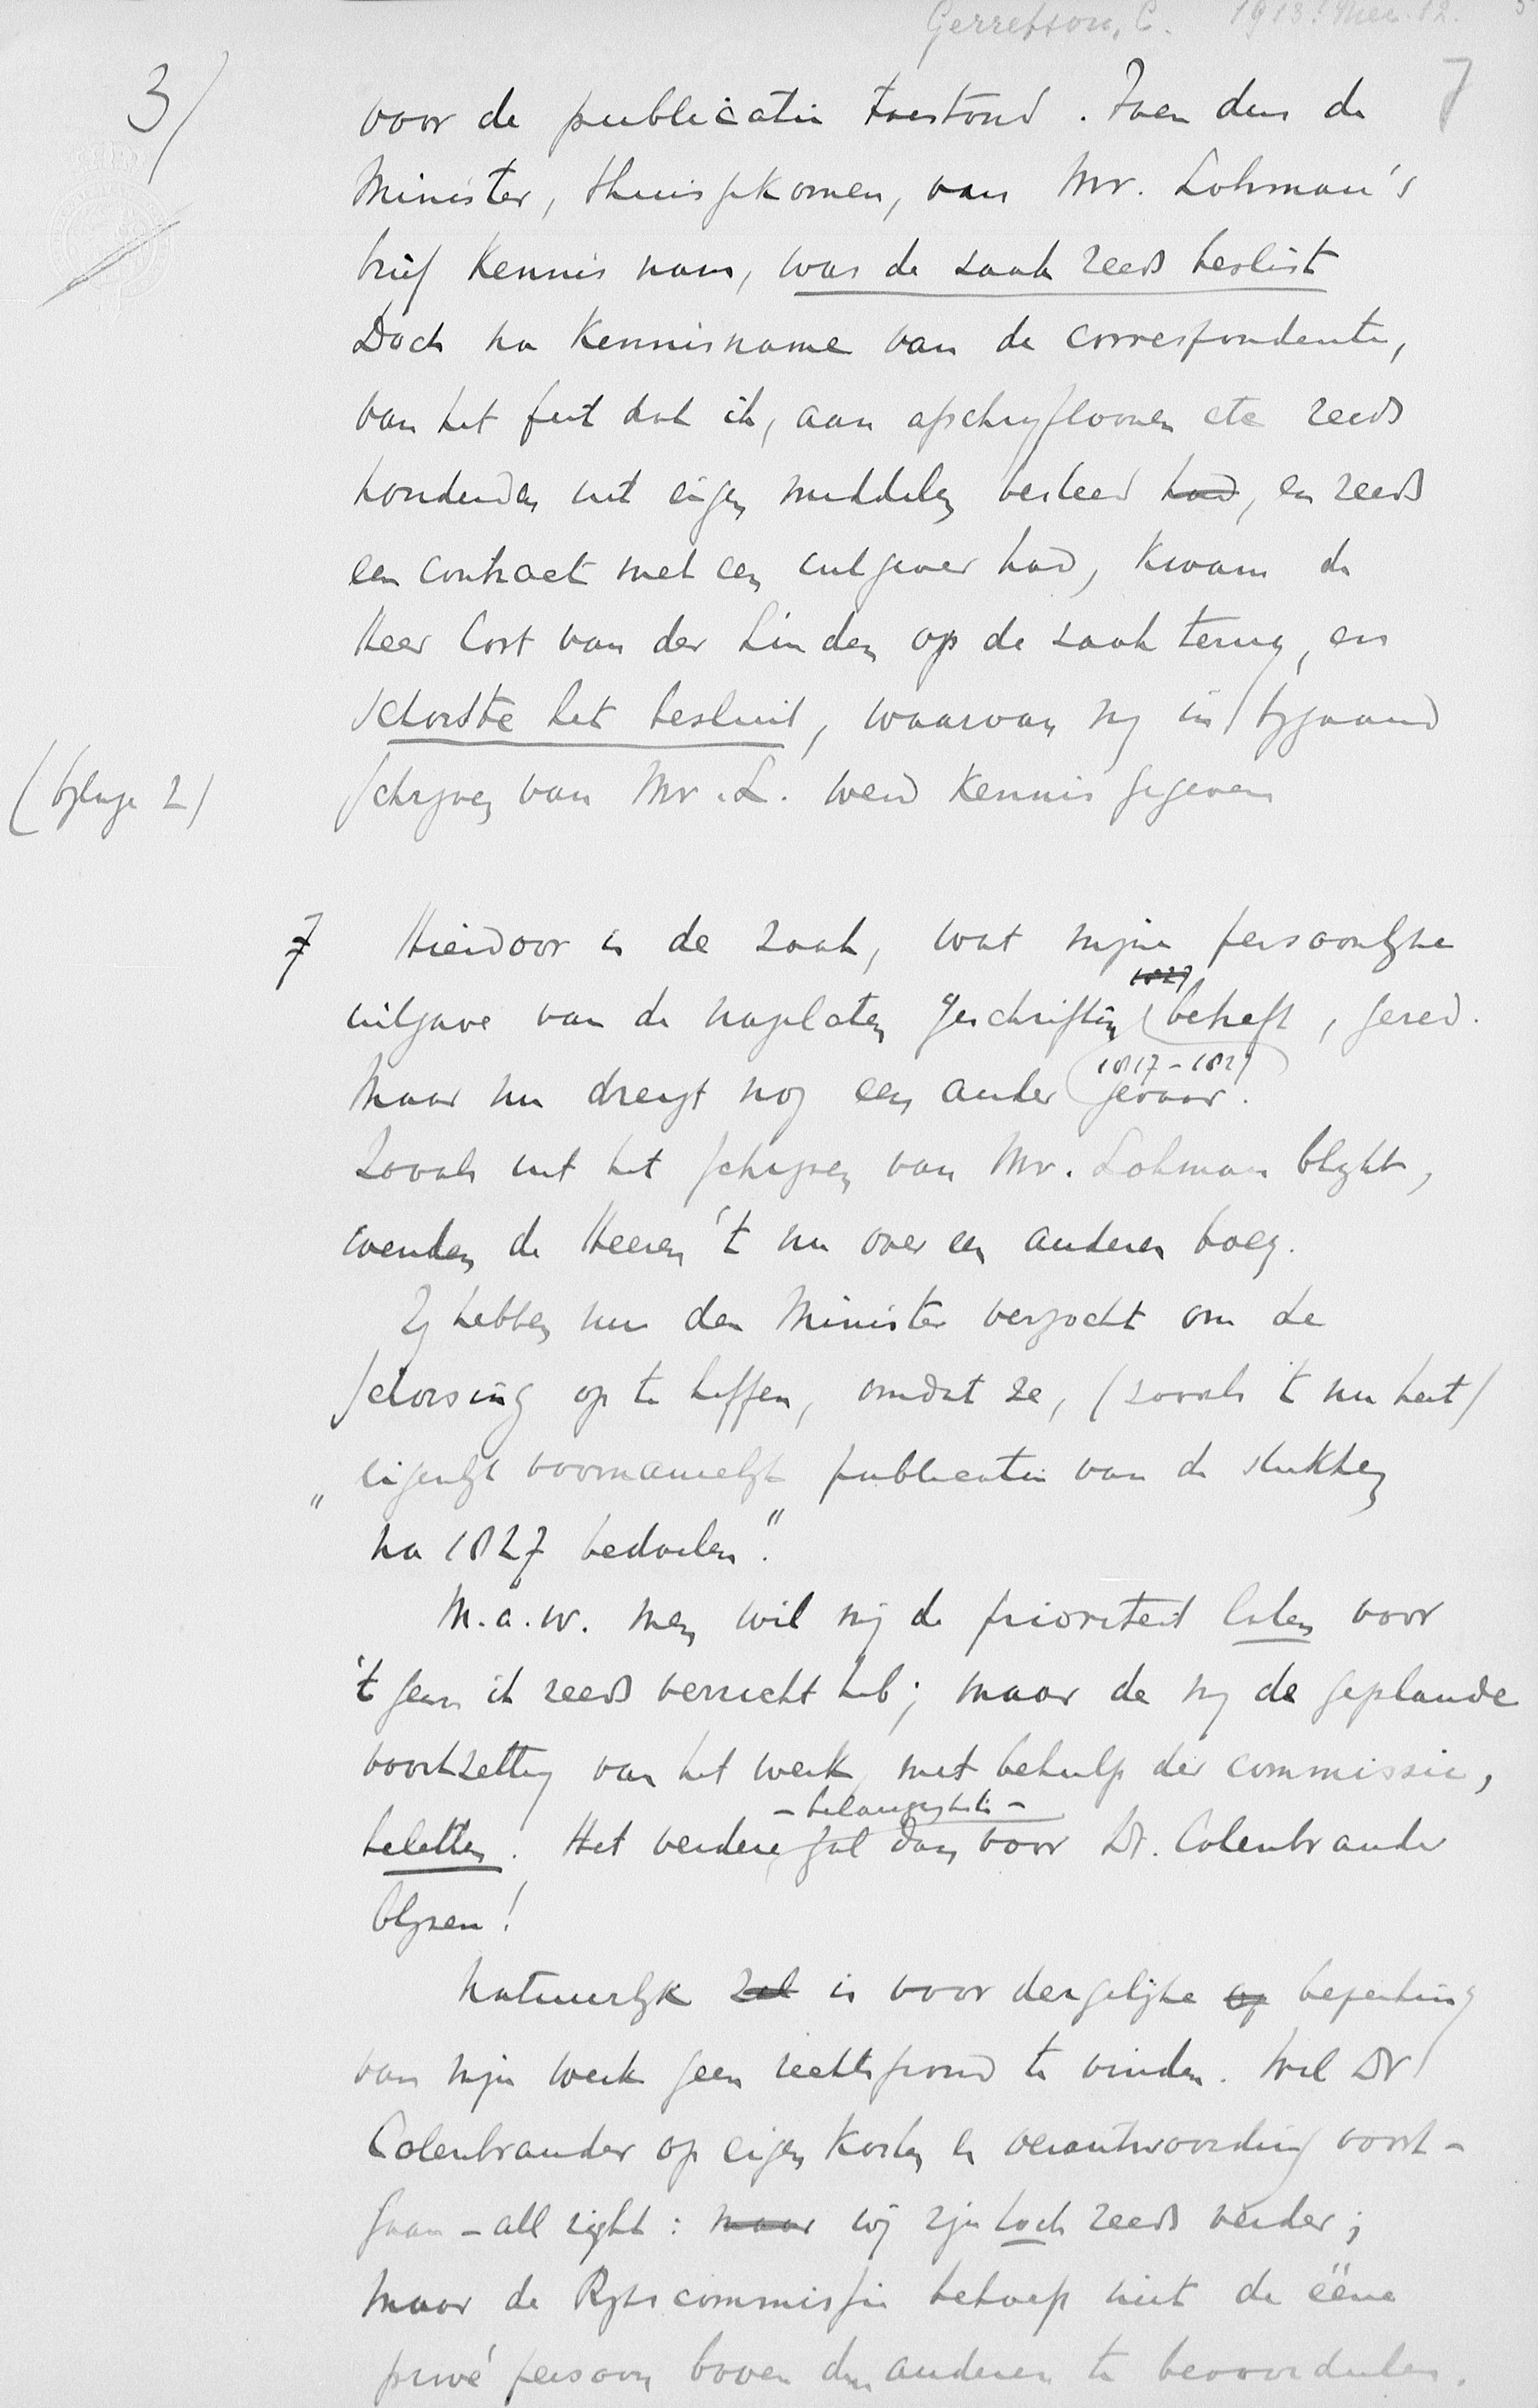 Gerretson, C. 1913. Mei. 12.
3/
7
voor de publicatie toestond. Toen dus de
Minister, thuisgekomen, van Mr. Lohman's
brief kennis nam, was de zaak reeds beslist
Doch na kennisname van de correspondentie,
van het feit dat ik, aan afschrijfloonen etc reeds
honderden uit eigen middelen besteed had, en reeds
een contract met een uitgever had, kwam de
Heer Cort van der Linden op de zaak terug, en
schorste het besluit, waarvan mij in bijgaand
(bijlage 2) schrijven van Mr. L. werd kennis gegeven
7 Hierdoor is de zaak, wat mijne persoonlijke
1827
uitgave van de nagelaten geschriften betreft, gered.
(1817-1827)
Maar nu dreigt nog een ander gevaar.
Zooals uit het schrijven van Mr. Lohman blijkt,
wenden de Heeren 't nu over een anderen boeg.
Zij hebben nu den Minister verzocht om de
schorsing op te heffen, omdat ze, (zooals 't nu heet)
"eigenlijk voornamelijk publicatie van de stukken
na 1827 bedoelen".
M.a.w. men wil mij de prioriteit laten voor
't geen ik reeds verricht heb; maar de mij de geplande
voortzetting van het werk, met behulp der commissie,
- belangrijkste -
beletten. Het verdere zal dan voor Dr. Colenbrander
blijven!
Natuurlijk zal is voor dergelijke op beperking
van mijn werk geen rechtsgrond te vinden. Wil Dr
Colenbrander op eigen kosten en verantwoording voort-
gaan - all right: maar wij zijn toch reeds verder;
maar de Rijkscommissie behoeft niet de ééne
privé persoon boven den anderen te bevoordeelen.